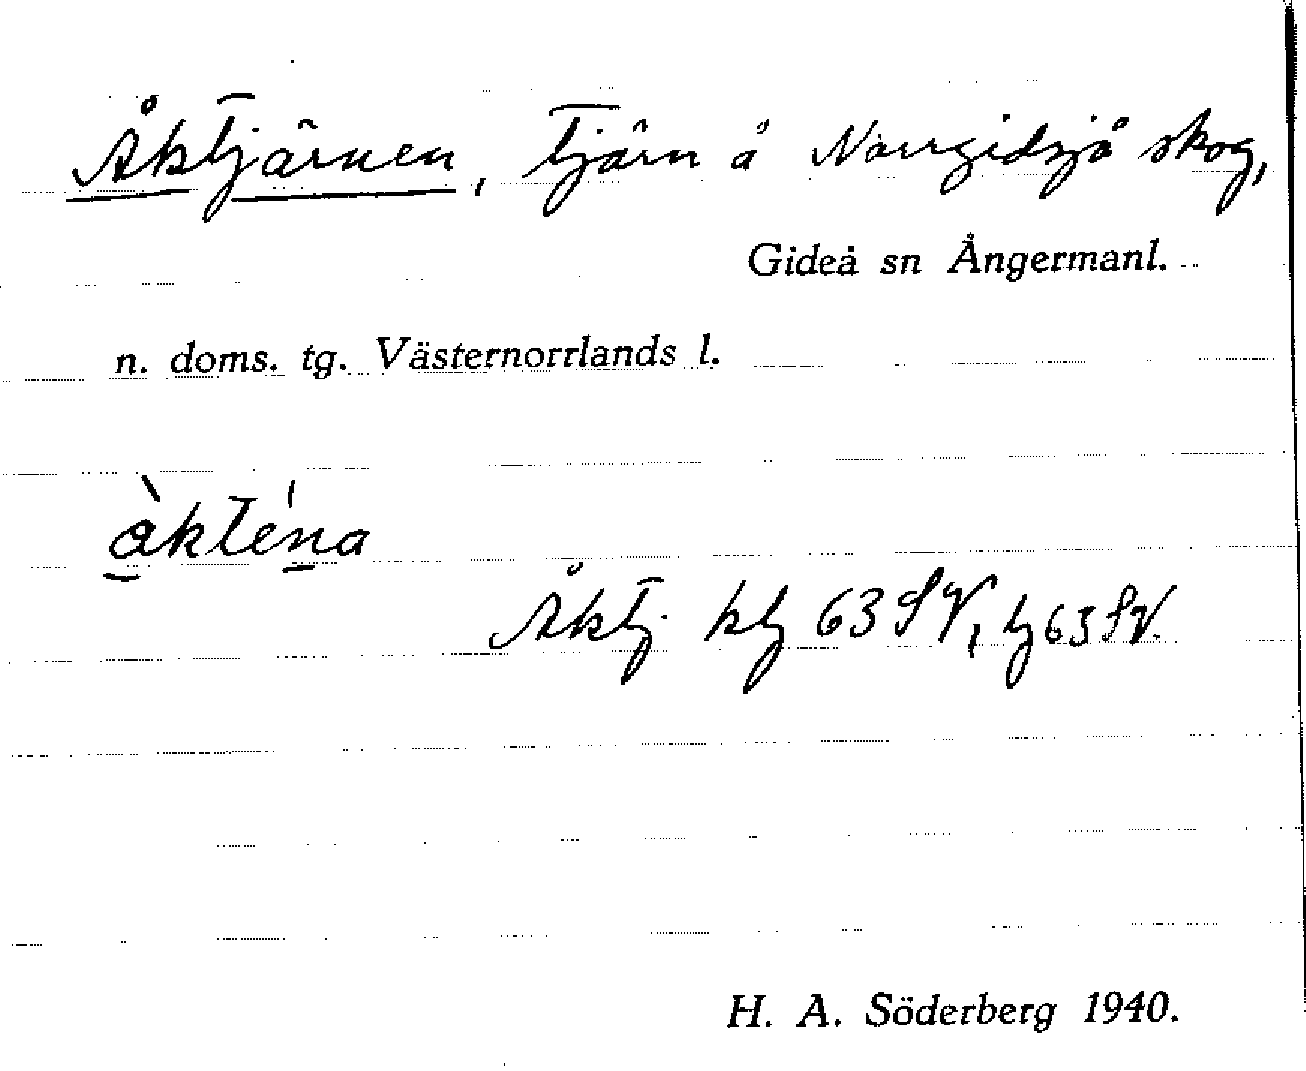 Åktjärnen, tjärn å Norrgidsjö skog,
Gideå sn Ångermanl.
n. doms. tg. Västernorrlands l.
Åktj. ktj 63 SV, tj 63 SV.
H. A. Söderberg 1940.